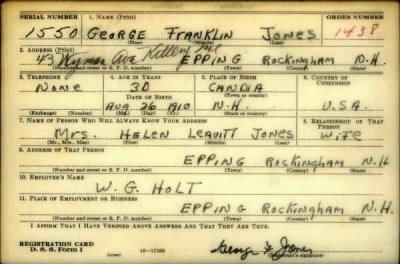 SERIAL NUMBER 1. NAME (Print) ORDER NUMBER
1550 GEORGE FRANKLIN JONES 1438
(First) (Middle) (Last)
2. ADDRESS (Print)
43 Wyman Ave EPPING ROCKINGHAM N.H.
(Number and street or R. F. D. number) (Town) (County) (State)
3. TELEPHONE 4. AGE IN YEARS 5. PLACE OF BIRTH 6. COUNTRY OF CITIZENSHIP
NONE 30 CANDIA
DATE OF BIRTH (Town or county)
AUG 26 1910 N.H. U.S.A.
(Exchange) (Number) (Mo.) (Day) (Yr.) (State or country)
7. NAME OF PERSON WHO WILL ALWAYS KNOW YOUR ADDRESS 8. RELATIONSHIP OF THAT PERSON
MRS. HELEN LEAVITT JONES WIFE
(Mr., Mrs., Miss) (First) (Middle) (Last)
9. ADDRESS OF THAT PERSON
EPPING ROCKINGHAM N.H
(Number and street or R. F. D. number) (Town) (County) (State)
10. EMPLOYER'S NAME
W. G. HOLT
11. PLACE OF EMPLOYMENT OR BUSINESS
EPPING ROCKINGHAM N.H.
(Number and street or R. F. D. number) (Town) (County) (State)
I AFFIRM THAT I HAVE VERIFIED ABOVE ANSWERS AND THAT THEY ARE TRUE.
REGISTRATION CARD
D. S. S. Form 1 (over) 16-17105 George F. Jones
(Registrant's signature)